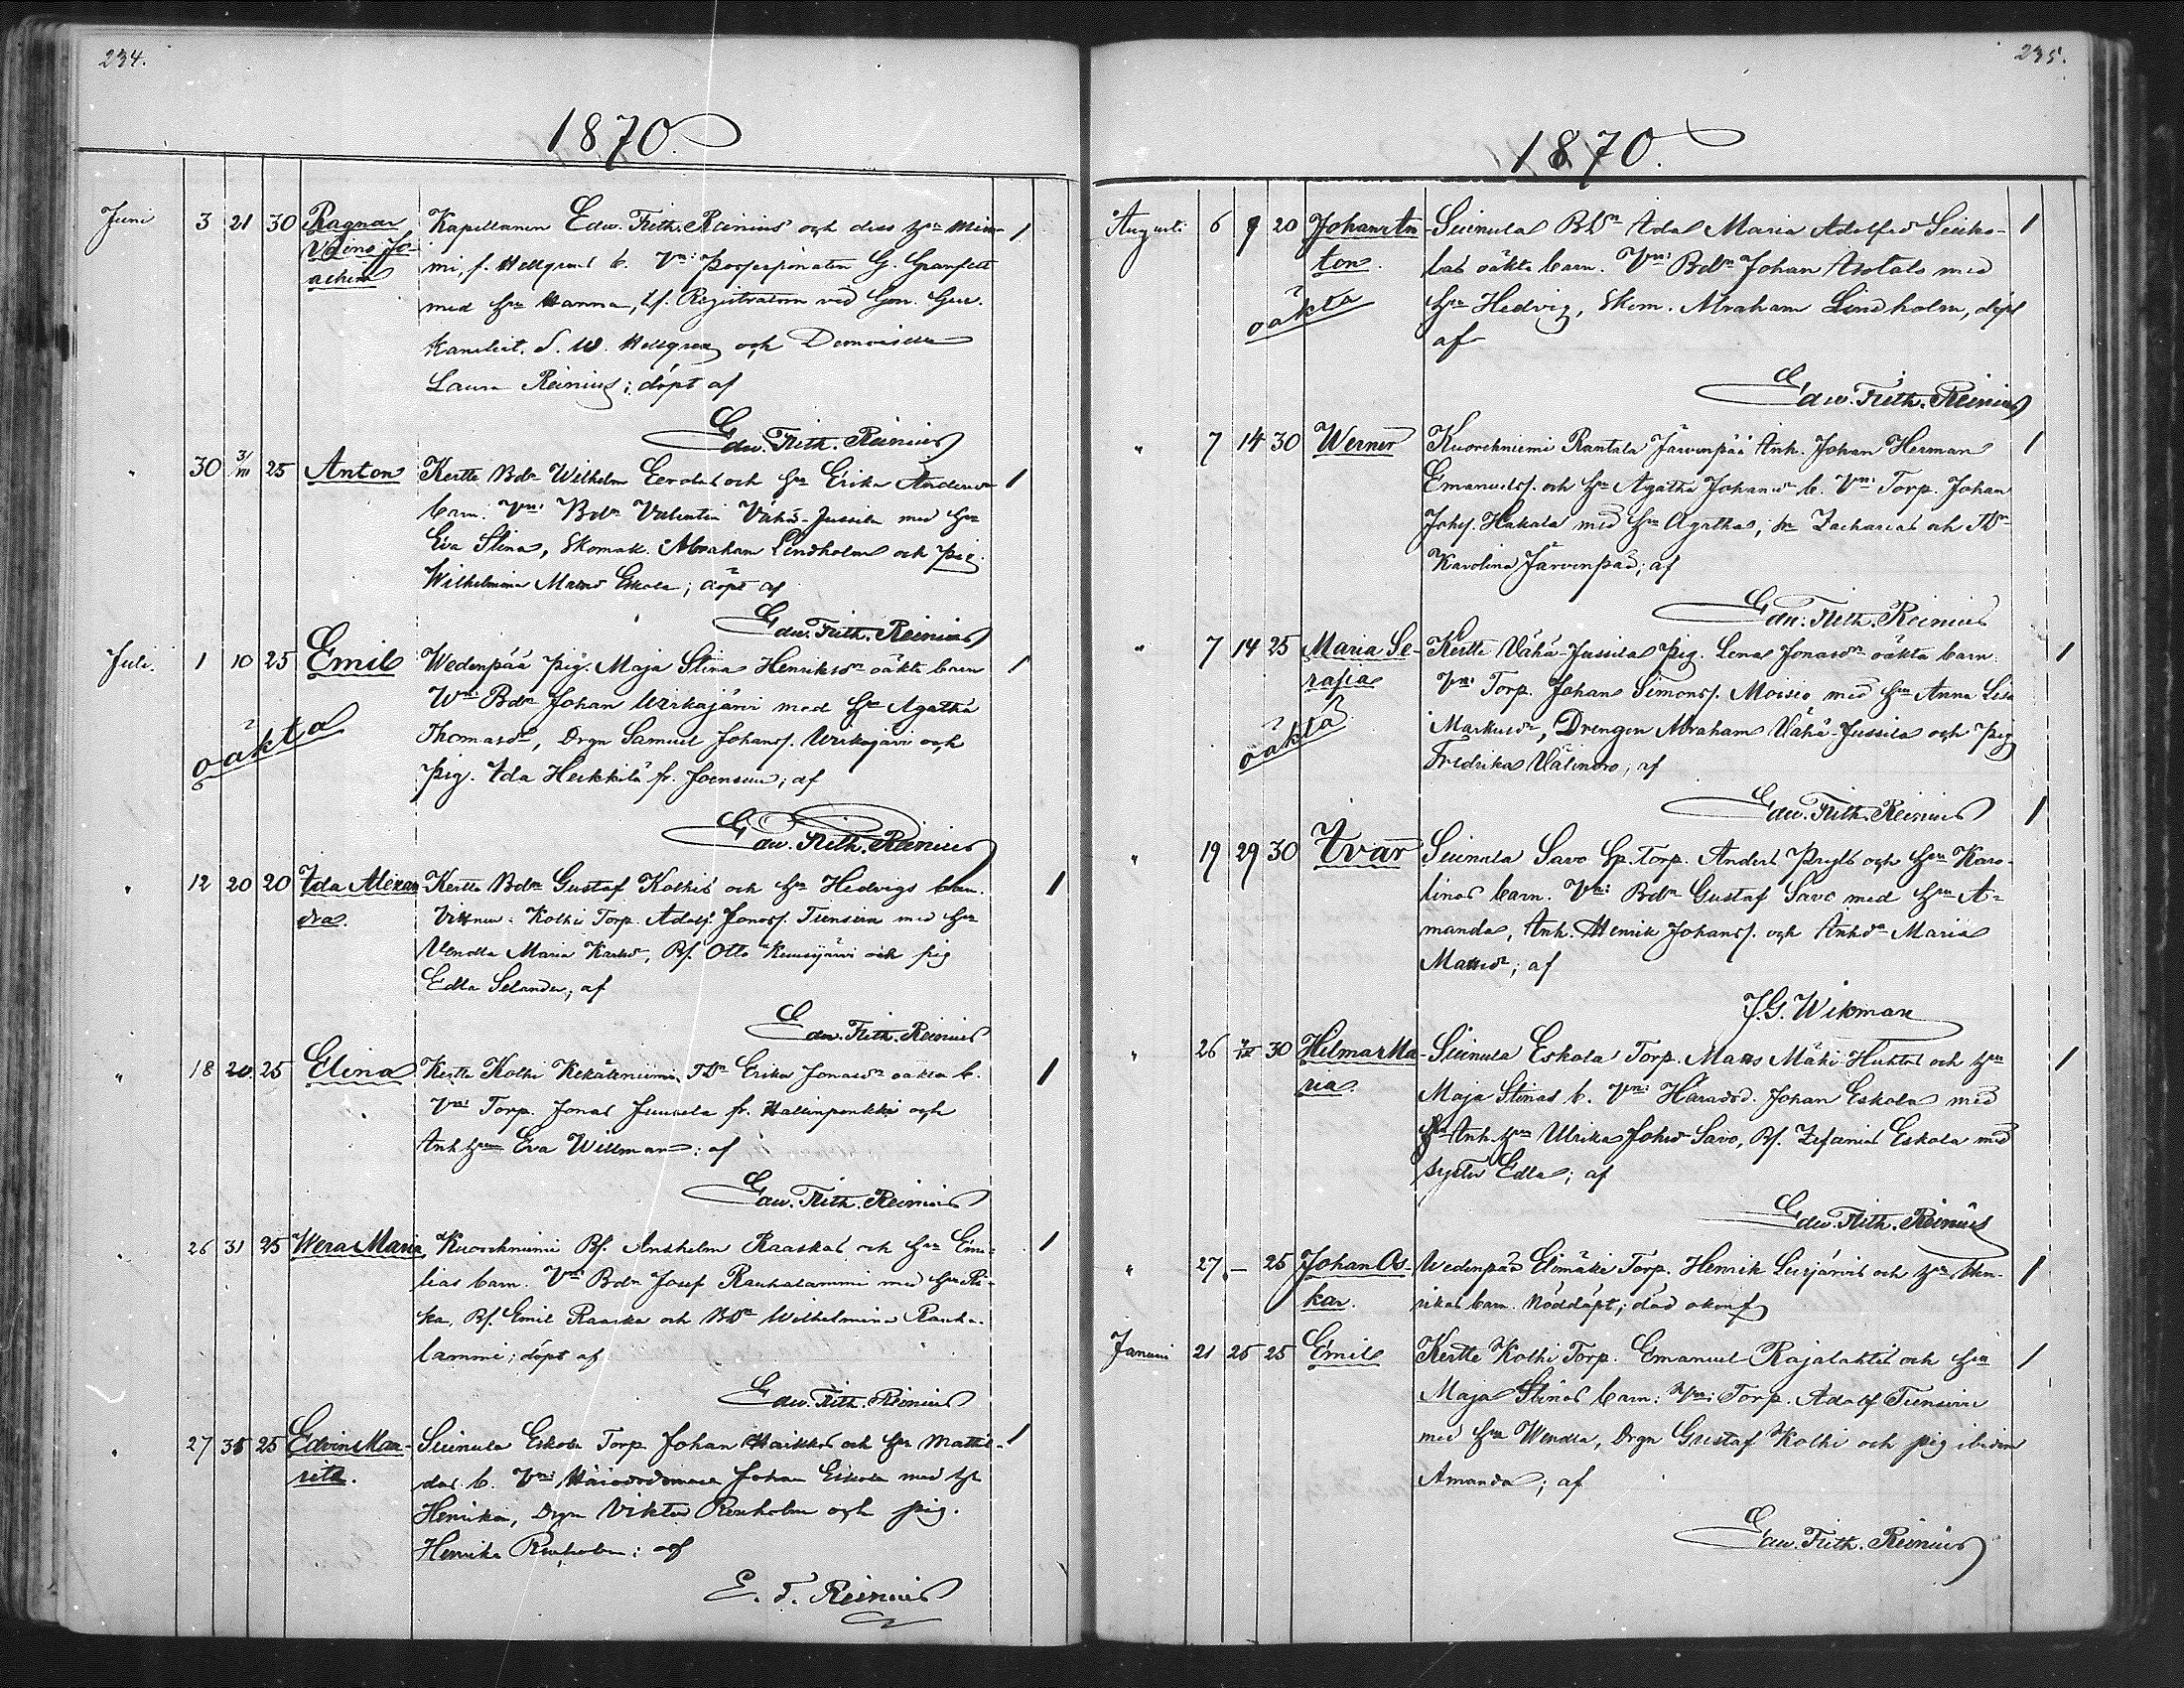 234.
1870.
Juni 3 21 30 Ragnar Kapellanen Edw. Frith. Reinius och dess hu Min-
Väinö Jo- mi, f. Hellgren b. Vn: G. Granfelt
achim med hu Hanna, Registratorn vid Gen. Guv.
Kansliet. d. W. Hellgren och Demoiselle
Laura Reinius; döpt af
Edw. Frith. Reinius
" 30 3/VII 25 Anton Kertte Bdn Wilhelm Eerolas och hu Erika Andersdr
barn. Vn: Bdn Valentin Vähä-Jussila med hu
Eva Stina, Skomak. Abraham Lindholm och pig.
Wilhelmina Matsdr Eskola; döpt af
Edw. Frith. Reinius
Juli. 1 10 25 Emil Wedenpää pig. Maja Stina Henriksdr oäkta barn
oäkta Wn: Bdn Johan Wirkajärvi med hu Agatha
Thomasdr, Drgn Samuel Johanss. Wirkajärvi och
pig. Ida Heikkilä fr. Joensuu; af
Edw. Frith. Reinius
" 12 20 20 Ida Alexan- Kertte Bdn Gustaf Kolhis och hu Hedvigs barn.
dra. Vittnen: Kolhi Torp. Adolf Jonass. Tiensivu med hu
Wendla Maria Karlsdr, Bs. Otto och pig
Edla Selander; af
Edw. Frith. Reinius
" 18 20 25 Elina Kertte Kolhi TDr Erika Jonasdr oäkta b.
Vn: Torp. Jonas Juusela fr. Hallinpenkki och
Anh hu Eva Willman; af
Edw. Frith. Reinius
" 26 31 25 Wera Maria Kuorehniemi Bs. Anshelm Raaskas och hu Emi-
lias barn. Vn: Bdn Josef Rauhalammi med hu Ri-
ka, Bs. Emil Raaska och BDr Wilhelmina Rauha-
lammi; döpt af
Edw. Frith. Reinius
" 27 31 25 Edvin Mau- Suinula Eskola Torp Johan Haikkas och hu Mattil-
ritz. das b. Vn: Häradsdomare Johan Eskola med hu
Henrika, Drgn Viktor Renholm och pig.
Henrika Renholm; af
E. F. Reinius
235.
1870.
Augusti 6 9 20 Johan An- Suinula BDr Ida Maria Adolfsdr Siuko-
ton. las oäkta barn. Vn: Bdn Johan Isotalo med
oäkta hu Hedvig, Skom. Abraham Lindholm, döpt
af
Edw. Frith. Reinius
" 7 14 30 Werner Kuorehniemi Rantala Järvenpää Anh. Johan Herman
Emanuelss. och hu Agatha Johansdr b. Vn: Torp. Johan
Johss. Hakala med hu Agatha; Zacharias och TDr
Karolina Järvenpää; af
Edw. Frith. Reinius
" 7 14 25 Maria Se- Kertte Vähä-Jussila pig. Lena Jonasdr oäkta barn.
rafia Vn: Torp. Johan Simonss. Moisio med hu Anna Lisa
oäkta Markusdr, Drengen Abraham Vähä-Jussila och pig
Fredrika Välinoro; af
Edw. Frith. Reinius
" 19 29 30 Ivar Suinula Savo Sp. Torp. Anders Pryls och hu Karo-
linas barn. Vn: Bdn Gustaf Savo med hu A-
manda, Anh. Henrik Johanss. och Anhdr Maria
Matsdr; af
J. G. Wikman
" 26 30 Hilma Ma- Suinula Eskola Torp. Matts Mäki-Huhtas och hu
ria. Maja Stinas b. Vn: Häradsd. Johan Eskola med
hu Anh hu Ulrika Johsdr Savo, Bs. Zefanias Eskola med
syster Edla; af
Edw. Frith. Reinius
" 27 — 25 Johan Os- Wedenpää Elomäki Torp. Henrik Lusijärvis och hu Hen-
kar. rikas barn. Nöddöpt; död okonf.
Januari 21 25 25 Emil Kertte Kolhi Torp. Emanuel Rajalahtis och hu
Maja Stinas barn: Vn: Torp. Adolf Tiensivu
med hu Wendla, Drgn Gustaf Kolhi och pig ibidem
Amanda; af
Edw. Frith. Reinius